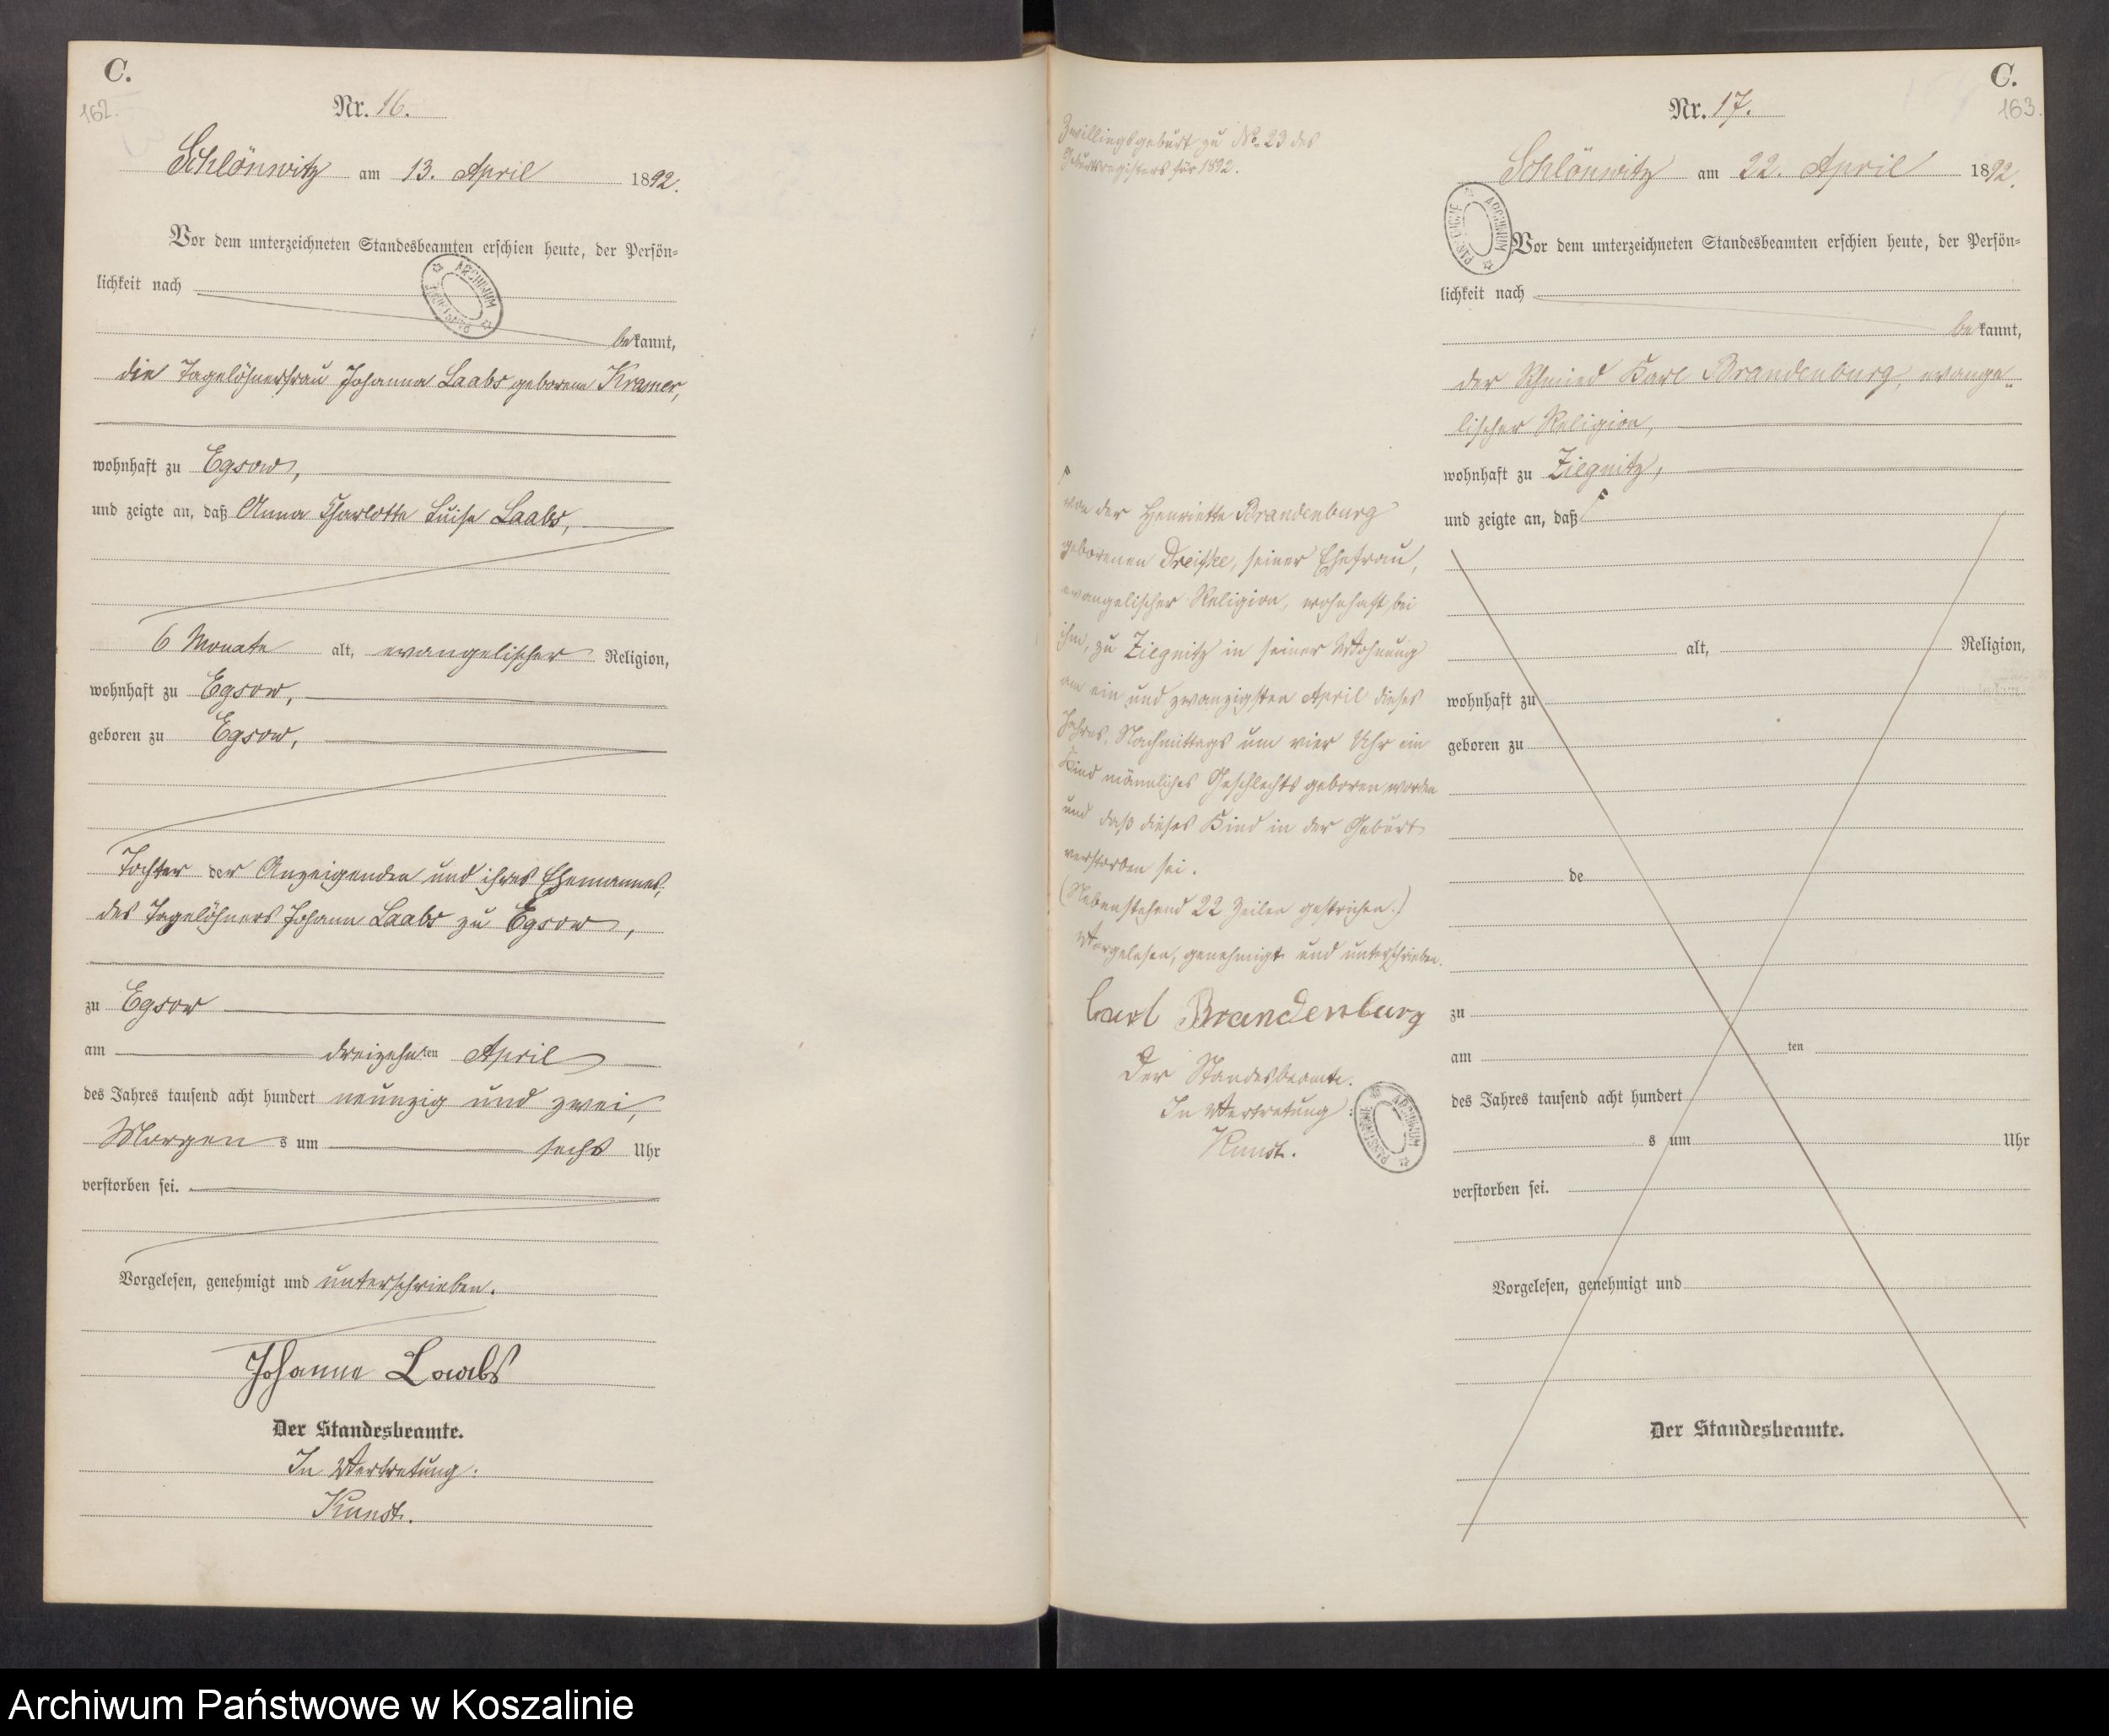 C.
162.
Nr. 16.
Schlönwitz am 13. April 1892.
Vor dem unterzeichneten Standesbeamten erschien heute, der Persön=
lichkeit nach
bekannt,
die Tagelöhnerfrau Johanna Laabs geborene Kramer,
wohnhaft zu Egsow,
und zeigte an, daß Anna Charlotte Luise Laabs,
6 Monate alt, evangelischer Religion,
wohnhaft zu Egsow,
geboren zu Egsow,
Tochter der Anzeigenden und ihres Ehemannes,
des Tagelöhners Johann Laabs zu Egsow,
zu Egsow
am dreizehnten April
des Jahres tausend acht hundert neunzig und zwei,
Morgens um sechs Uhr
verstorben sei.
Vorgelesen, genehmigt und unterschrieben.
Johanne Laabs
Der Standesbeamte.
In Vertretung.
Kunst.
C.
163.
Nr. 17.
Zwillingsgeburt zu No. 23 des
Geburtsregisters für 1892.
Schlönwitz am 22. April 1892.
ARCHIWUM PAŃSTWOWE
Vor dem unterzeichneten Standesbeamten erschien heute, der Persön=
lichkeit nach
bekannt,
der Schmied Karl Brandenburg, evange=
lischer Religion,
wohnhaft zu Ziegnitz,
und zeigte an, daß
von der Henriette Brandenburg
geborenen Dreiske, seiner Ehefrau,
evangelischer Religion, wohnhaft bei
ihm, zu Ziegnitz in seiner Wohnung
am ein und zwanzigsten April dieses
Jahres, Nachmittags um vier Uhr ein
Kind männliches Geschlechts geboren worden
und daß dieses Kind in der Geburt
verstorben sei.
(Nebenstehend 22 Zeilen gestrichen.)
Vorgelesen, genehmigt und unterschrieben.
Carl Brandenburg
Der Standesbeamte.
In Vertretung:
Kunst.
alt, Religion,
wohnhaft zu
geboren zu
de
zu
am ten
des Jahres tausend acht hundert
s um Uhr
verstorben sei.
Vorgelesen, genehmigt und
Der Standesbeamte.
Archiwum Państwowe w Koszalinie